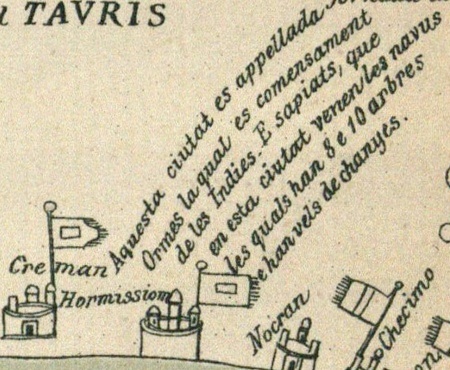 TAVRIS
Aquesta ciutat es appellada
Ormes la qual es comensament
de les Indies. E sapiats, que
en esta ciutat venen les navus
les quals han 8 e 10 arbres
e han vels de chanyes.
Creman
Hormission
Nocran
Checimo